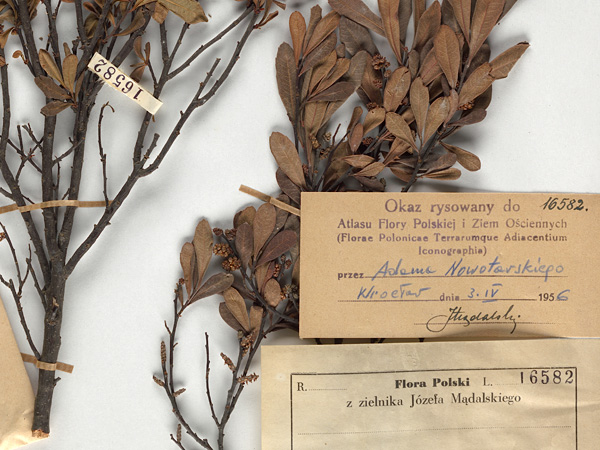 16582
Okaz rysowany do 16582.
Atlasu Flory Polskiej i Ziem Ościennych
(Florae Polonicae Terrarumque Adiacentium
Iconographia)
przez Adama Nowotarskiego
Wrocław dnia 3. IV 1956
JMądalski
R. Flora Polski L. 16582
z zielnika Józefa Mądalskiego